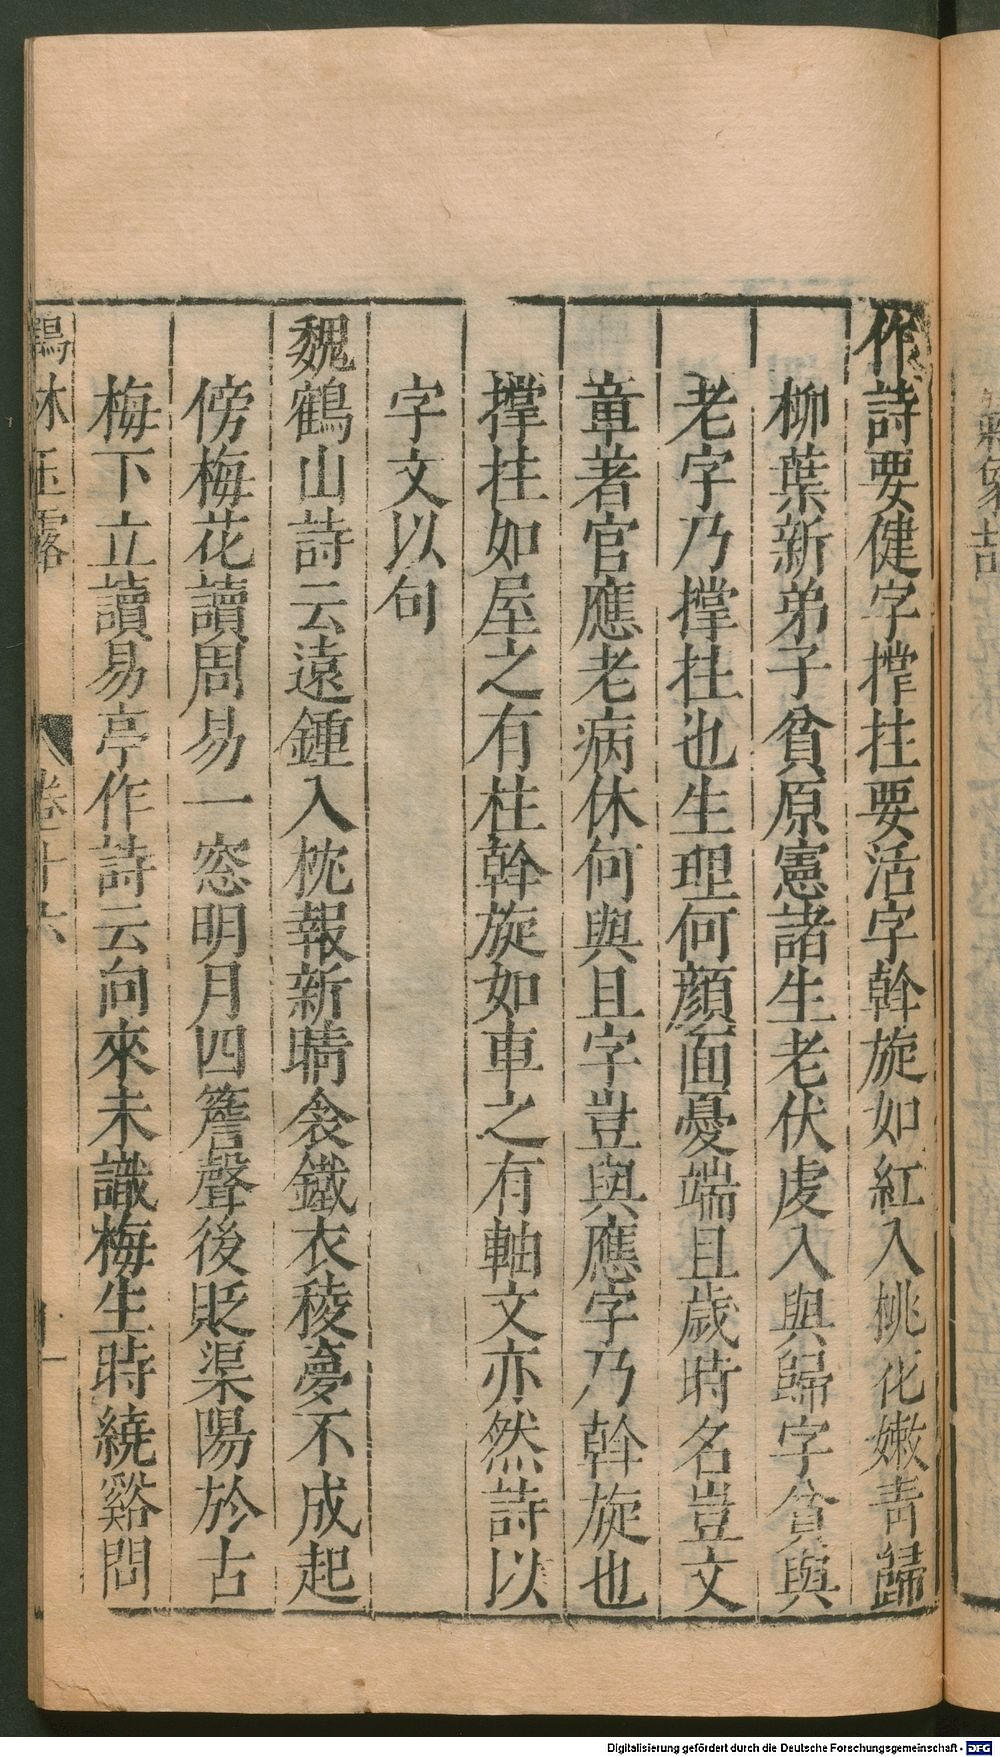 作詩要健字撑拄要活字斡旋如紅入桃花嫩青歸
柳葉新弟子貧原憲諸生老伏虔入與歸字貧與
老字乃撑拄也生理何顔面憂端且歲時名豈文
章著官應老病休何與且字豈與應字乃斡旋也
撑拄如屋之有柱斡旋如車之有軸文亦然詩以
字文以句
魏鶴山詩云遠鍾入枕報新晴衾鐵衣稜夢不成起
傍梅花讀周易一窓明月四簷聲後貶渠陽於古
梅下立讀易亭作詩云向來未識梅生時繞谿問
鶴林玉露
卷十六
Digitalisierung gefördert durch die Deutsche Forschungsgemeinschaft - DFG